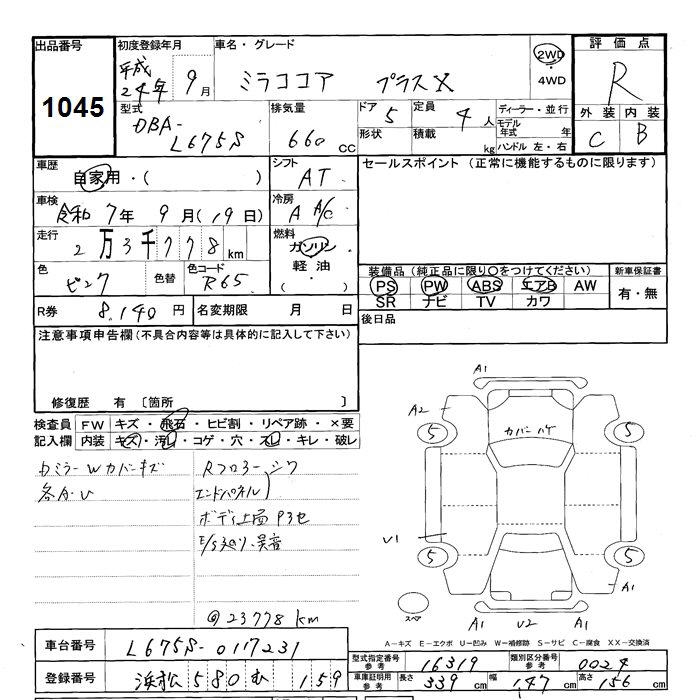 出品番号 初度登録年月 車名・グレード 評価点
1045
平成 24年 9月 ミラココア プラスX 2WD 4WD R
型式 排気量 ドア 5 定員 4人 ディーラー・並行 外装 内装
DBA-L675S 660cc 形状 積載 kg モデル年式 年 C B
ハンドル 左・右
車歴 シフト セールスポイント (正常に機能するものに限ります)
自家用・( ) AT
車検 冷房
令和 7年 9月(19日) A A/C
走行 燃料
2万3千778km ガソリン・軽油・( )
色 色替 色コード 装備品 (純正品に限り○をつけてください) 新車保証書
ピンク R65 PS PW ABS エアB AW 有・無
SR ナビ TV カワ
R券 8,140円 名変期限 月 日 後日品
注意事項申告欄(不具合内容等は具体的に記入して下さい)
修復歴 有 〔箇所 〕
検査員 FW キズ・飛石・ヒビ割・リペア跡・×要
記入欄 内装 キズ・汚レ・コゲ・穴・スレ・キレ・破レ
カバー
各A・U
エンドパネル
@23778km
A1
A2
5 5
U1
5 5
A1
スペア
A1 U2 A1
A-キズ E-エクボ U-凹み W-補修跡 S-サビ C-腐食 XX-交換済
車台番号 L675S-0117231
登録番号 浜松 580 む 159
型式指定番号 16319 類別区分番号 0024
車庫証明用参考 長さ 339cm 幅 147cm 高さ 156cm